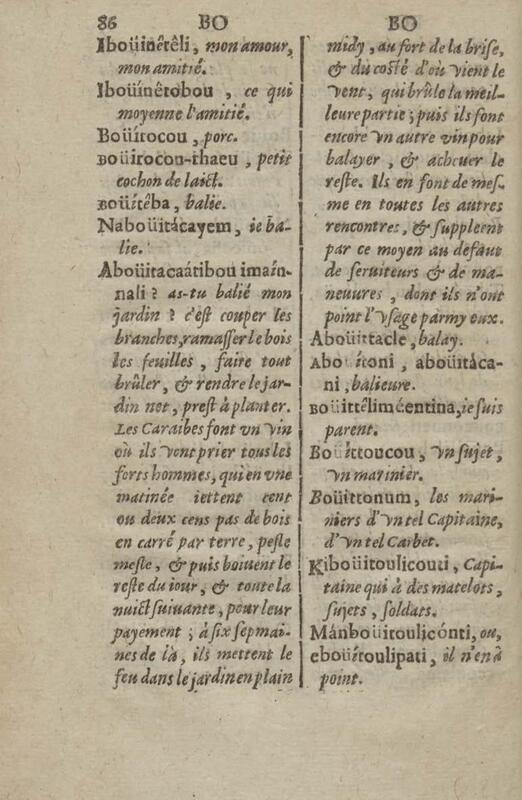 86 BO
Iboüinêtêli, mon amour,
mon amitié.
Iboüínêtobou, ce qui
moyenne l'amitié.
Boüírocou, porc.
BOüirocou-ihaeu, petit
cochon de laict.
BOüítêba, balie.
Naboüitácayem, ie ba-
lie.
Aboüitacaátibou imaín-
nali ? as-tu balié mon
jardin ? c'est couper les
branches, ramasser le bois
les feuilles, faire tout
brûler, & rendre le jar-
din net, prest à planter.
Les Caraibes font vn vin
où ils vont prier tous les
forts hommes, qui en vne
matinée iettent cent
ou deux cens pas de bois
en carré par terre, pesle
mesle, & puis boiuent le
reste du iour, & toute la
nuict suiuante, pour leur
payement ; à six sepmai-
nes de là, ils mettent le
feu dans le jardin en plain
BO
midy, au fort de la brise,
& du costé d'où vient le
vent, qui brûle la meil-
leure partie ; puis ils font
encore vn autre vin pour
balayer, & acheuer le
reste. Ils en font de mes-
me en toutes les autres
rencontres, & suppleent
par ce moyen au defaut
de seruiteurs & de ma-
neuures, dont ils n'ont
point l'vsage parmy eux.
Aboüittacle, balay.
Aboüítoni, aboüitáca-
ni, balieure.
BOüittêliméentina, ie suis
parent.
Boüíttoucou, vn sujet,
vn marinier.
Boüittonum, les mari-
niers d'vn tel Capitaine,
d'vn tel Carbet.
Kiboüitoulicouti, Capi-
taine qui à des matelots,
sujets, soldats.
Mánboüitoulicónti, ou,
eboüítoulipati, il n'en à
point.